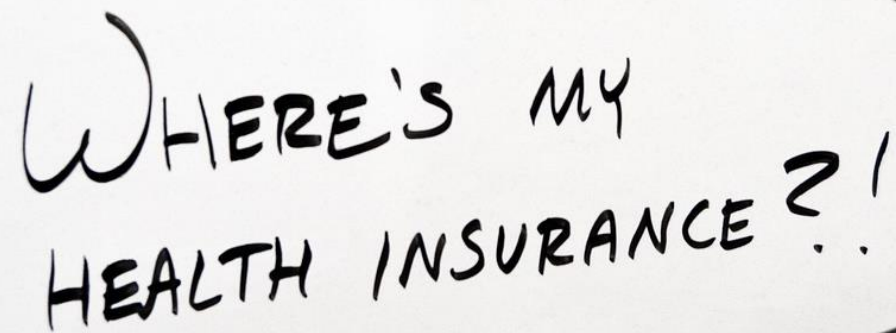 WHERE'S MY
HEALTH INSURANCE?!